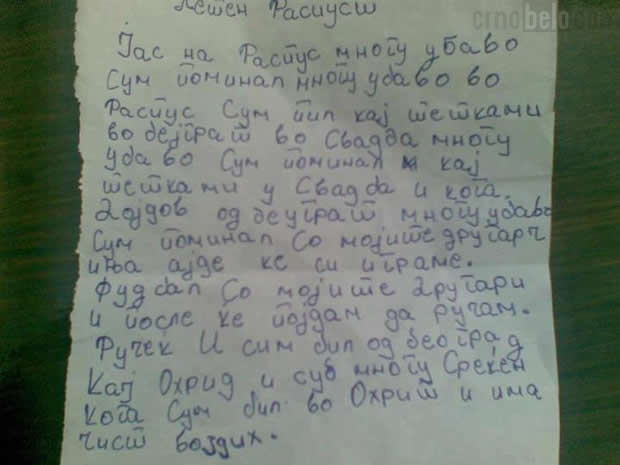 Летен Распуст
crnobelo.com
Јас на Распус многу убаво
Сум поминал многу убаво во
Распус Сум бил кај тетками
во бејграт во Свадба многу
убаво Сум поминал и кај
тетками у Свадба и кога
дојдов од беуграт многу убаво
Сум поминал Со мојите другарч
иња ајде ке си играме.
Фудбал Со мојите другари
и после ке појдам да ручам.
Ручек И сим бил од београд
Кај Охрид и суб многу Среќен
кога Сум бил во Охрит и има
чист воздих.